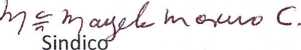 Ma Mayela Moreno C.
Sindico